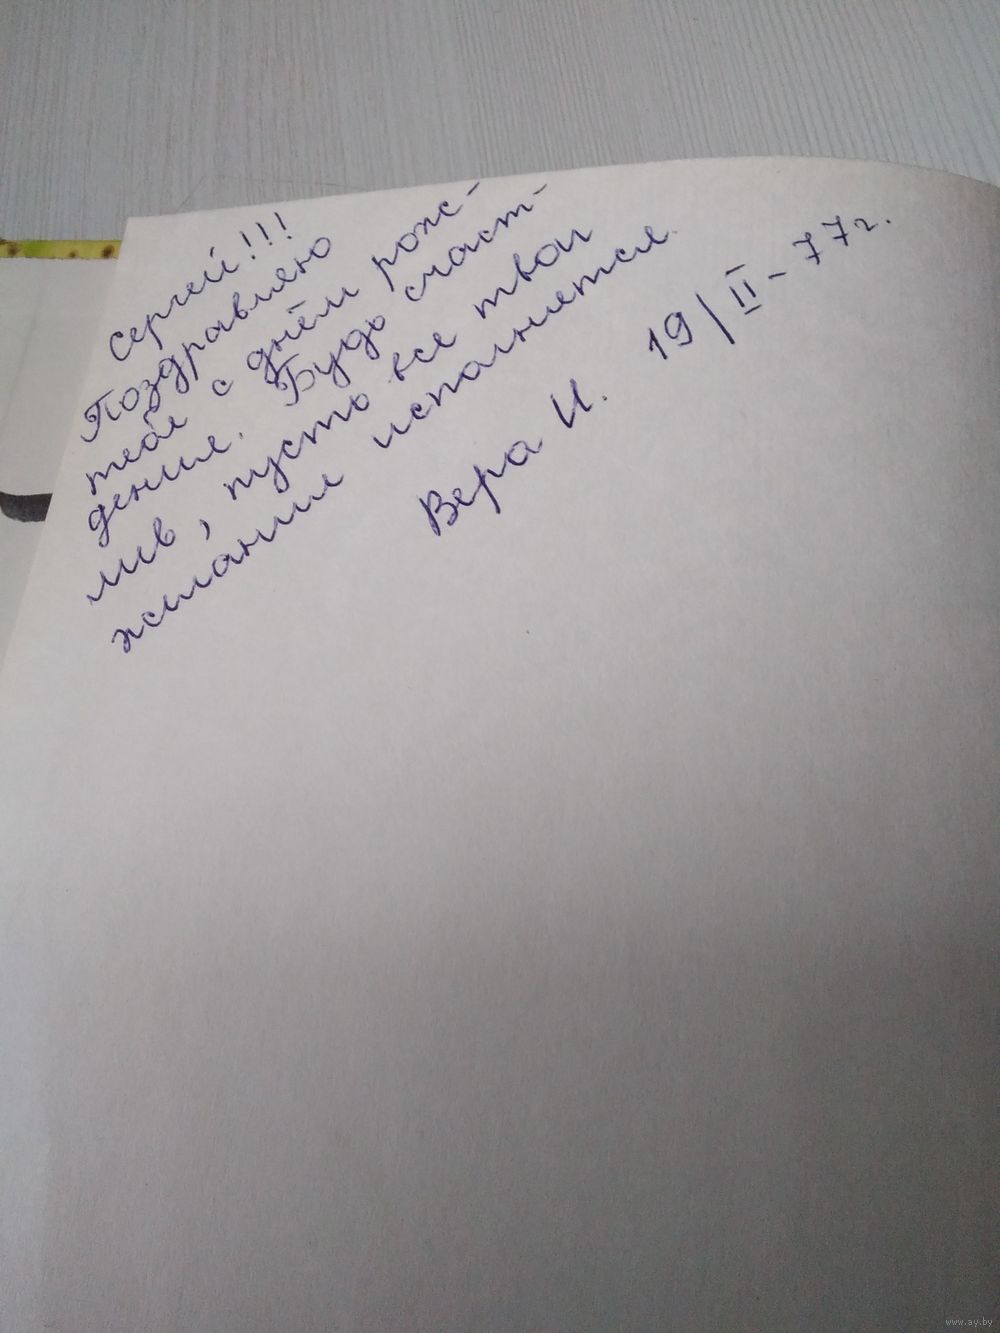 Сергей!!!
Поздравляю
тебя с днём рож-
дения. Будь счаст-
лив, пусть все твои
желания исполнятся.
Вера И. 19/II-77г.
www.ay.by